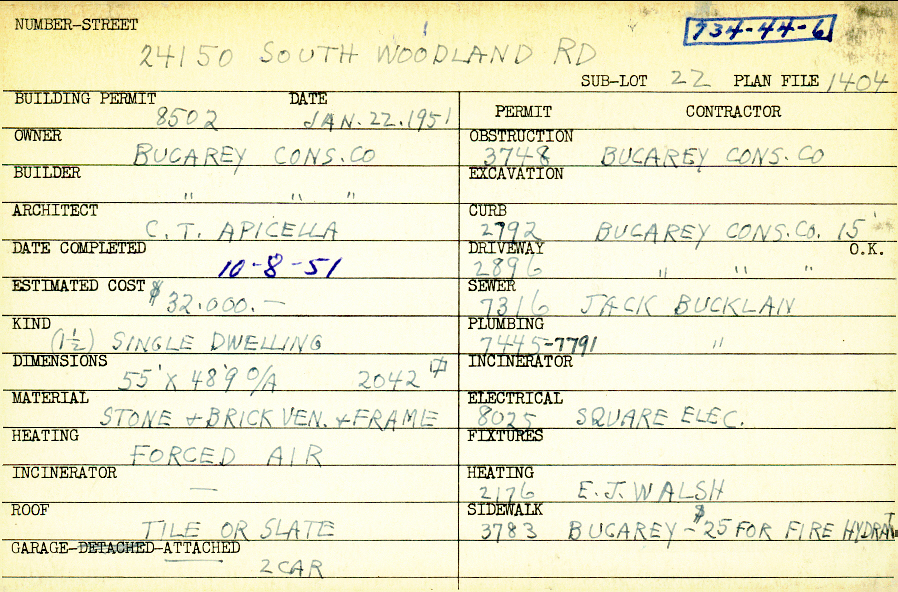 NUMBER-STREET
734-44-6
24150 SOUTH WOODLAND RD
SUB-LOT 22 PLAN FILE 1404
BUILDING PERMIT DATE
8502 JAN. 22. 1951
OWNER
BUCAREY CONS. CO
BUILDER
" " "
ARCHITECT
C. T. APICELLA
DATE COMPLETED
10-8-51
ESTIMATED COST $32.000.—
KIND
(1½) SINGLE DWELLING
DIMENSIONS
55' X 48'9 O/A 2042
MATERIAL
STONE + BRICK VEN. + FRAME
HEATING
FORCED AIR
INCINERATOR
—
ROOF
TILE OR SLATE
GARAGE-DETACHED-ATTACHED
2 CAR
PERMIT CONTRACTOR
OBSTRUCTION
3748 BUCAREY CONS. CO
EXCAVATION
CURB
2792 BUCAREY CONS. CO. 15'
DRIVEWAY O.K.
2896 " " "
SEWER
7316 JACK BUCKLAN
PLUMBING
7445-7791 "
INCINERATOR
ELECTRICAL
8025 SQUARE ELEC.
FIXTURES
HEATING
2176 E. J. WALSH
SIDEWALK
3783 BUCAREY - $25 FOR FIRE HYDRANT